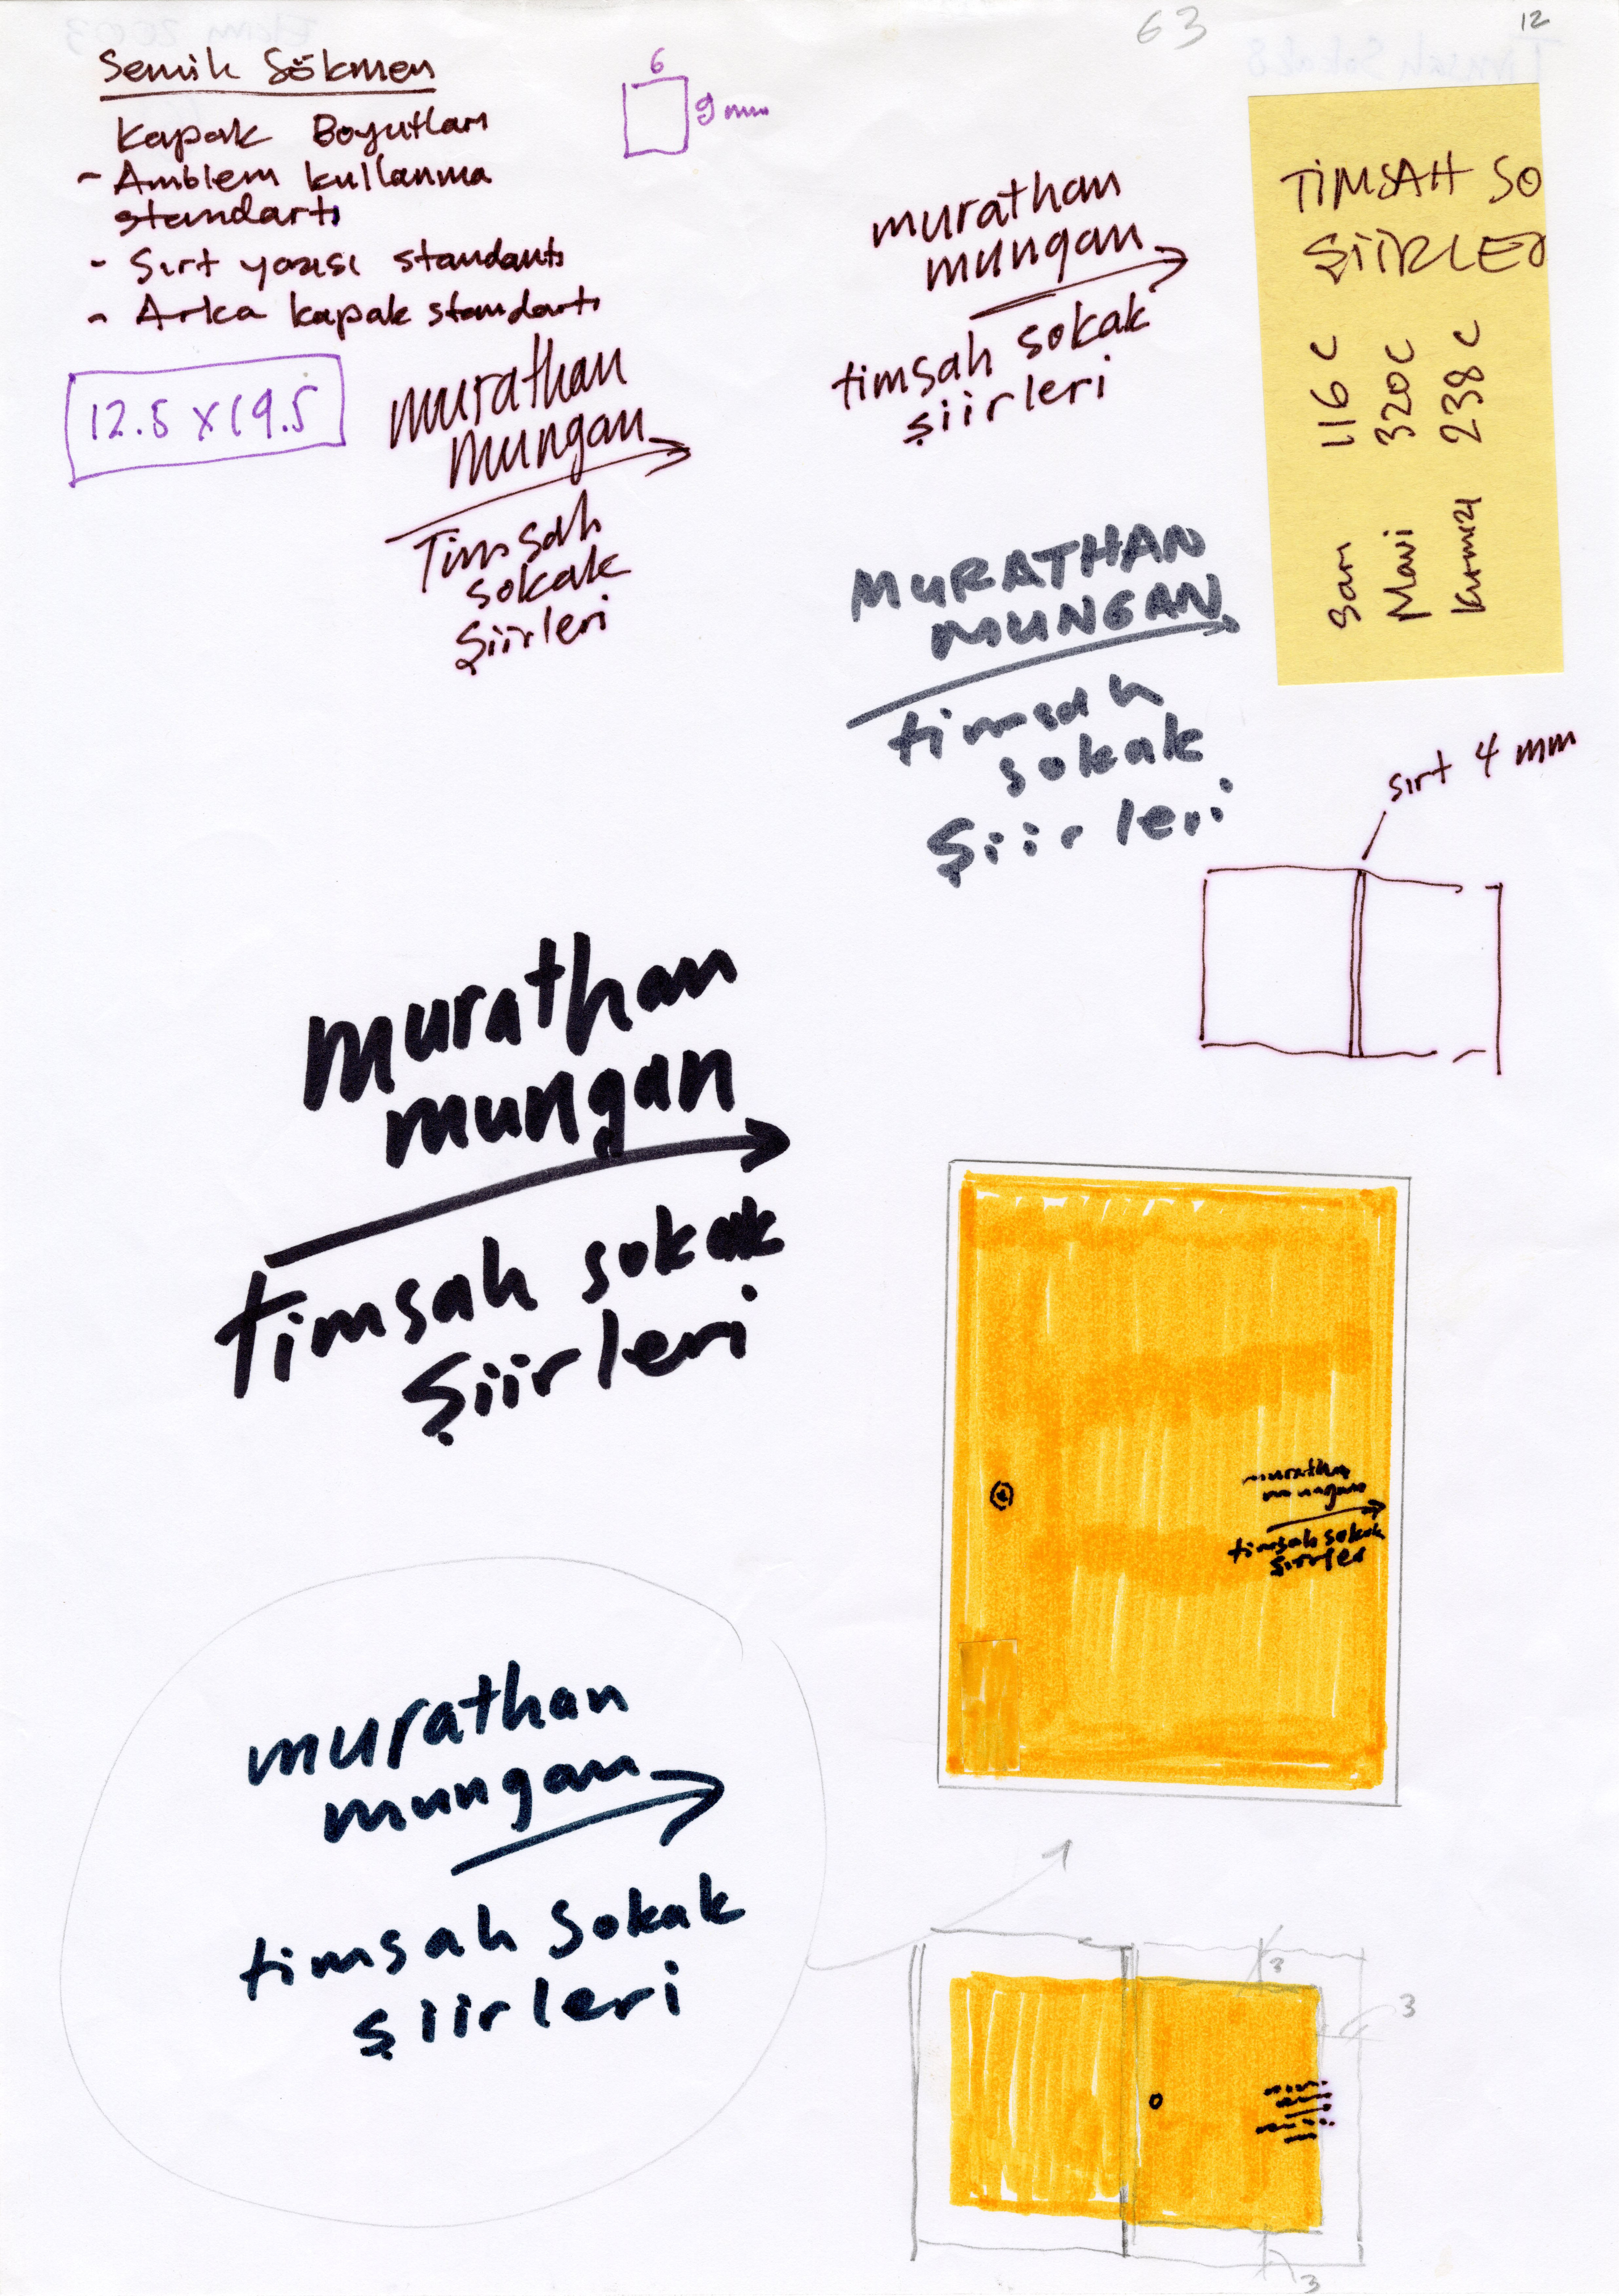 63
12
Semih Sökmen
Kapak Boyutları
- Amblem kullanma
standartı
- Sırt yazısı standartı
- Arka kapak standartı
6
9 mm
12.5 x 19.5
murathan
mungan
Timsah
sokak
Şiirleri
murathan
mungan
timsah sokak
şiirleri
TİMSAH SO
ŞİİRLER
Sarı 116 C
Mavi 320 C
Kırmızı 238 C
MURATHAN
MUNGAN
timsah
sokak
Şiirleri
sırt 4 mm
murathan
mungan
timsah sokak
Şiirleri
murathan
mungan
timsah sokak
Şiirler
murathan
mungan
timsah Sokak
şiirleri
3
3
3